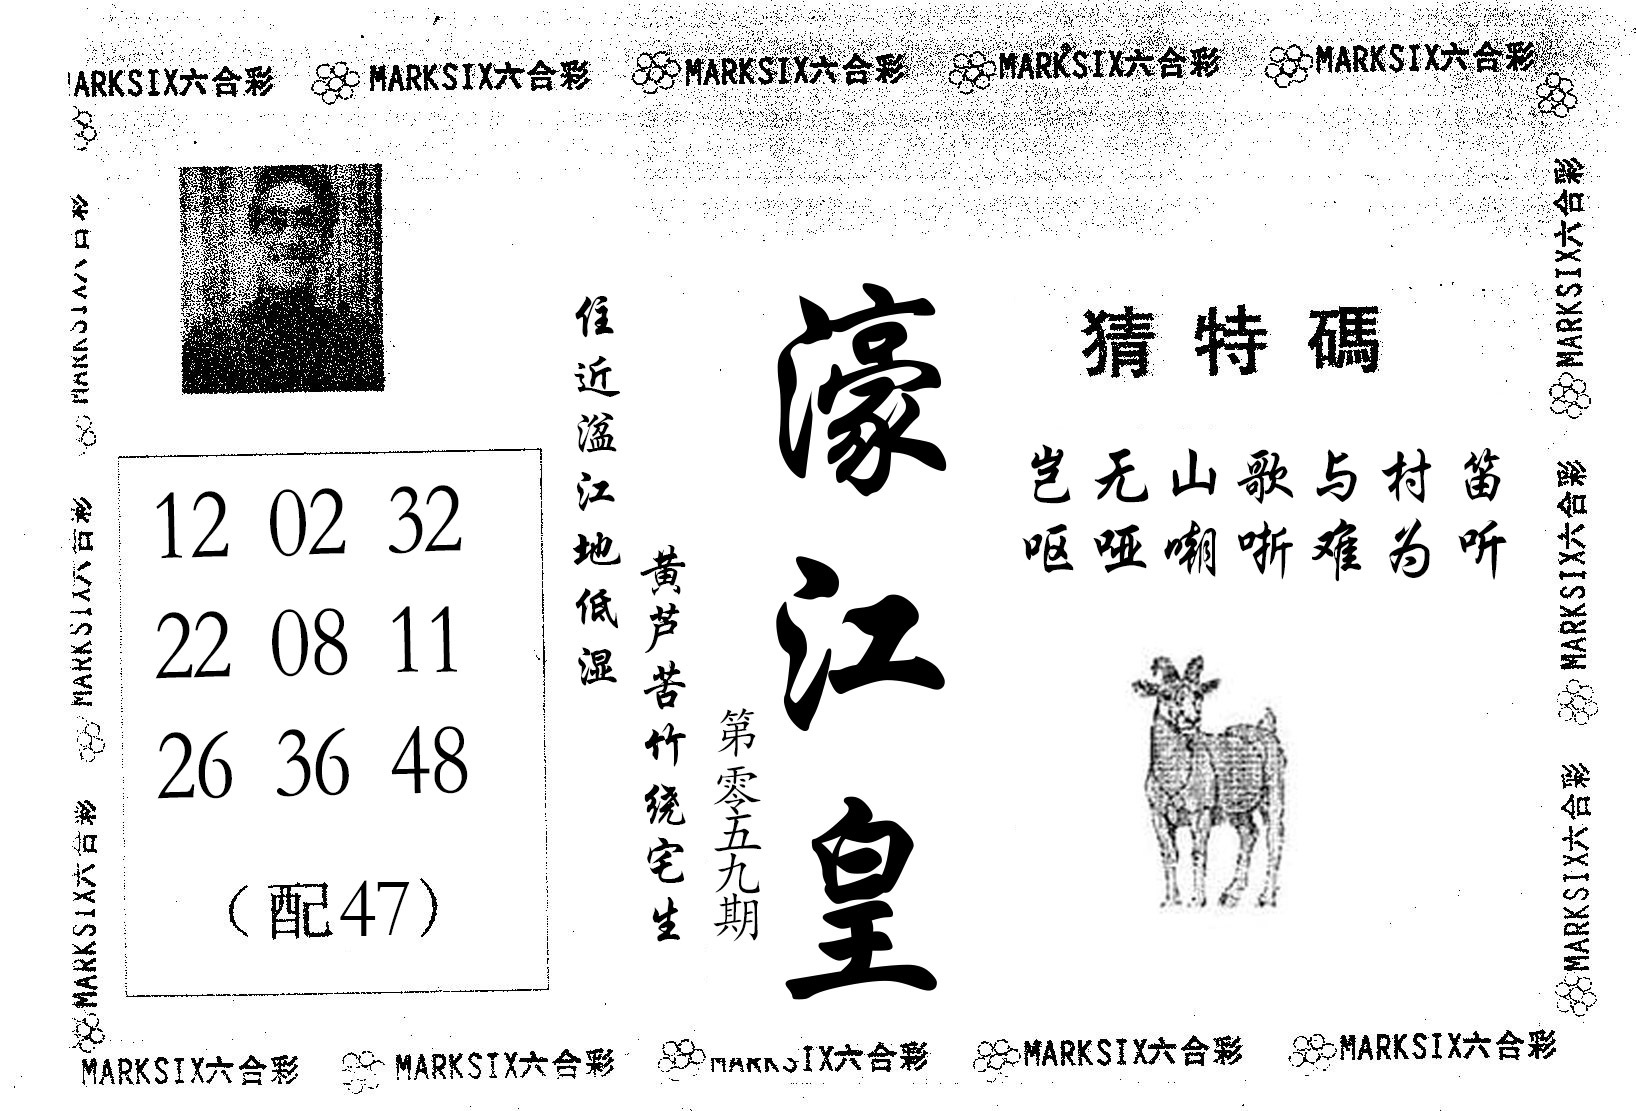 MARKSIX六合彩 MARKSIX六合彩 MARKSIX六合彩 MARKSIX六合彩 MARKSIX六合彩
猜特碼
岂无山歌与村笛
呕哑嘲哳难为听
濠江皇
第零五九期
住近湓江地低湿
黄芦苦竹绕宅生
12 02 32
22 08 11
26 36 48
（配47）
MARKSIX六合彩
MARKSIX六合彩
MARKSIX六合彩
MARKSIX六合彩
MARKSIX六合彩
MARKSIX六合彩
MARKSIX六合彩 MARKSIX六合彩 MARKSIX六合彩 MARKSIX六合彩 MARKSIX六合彩